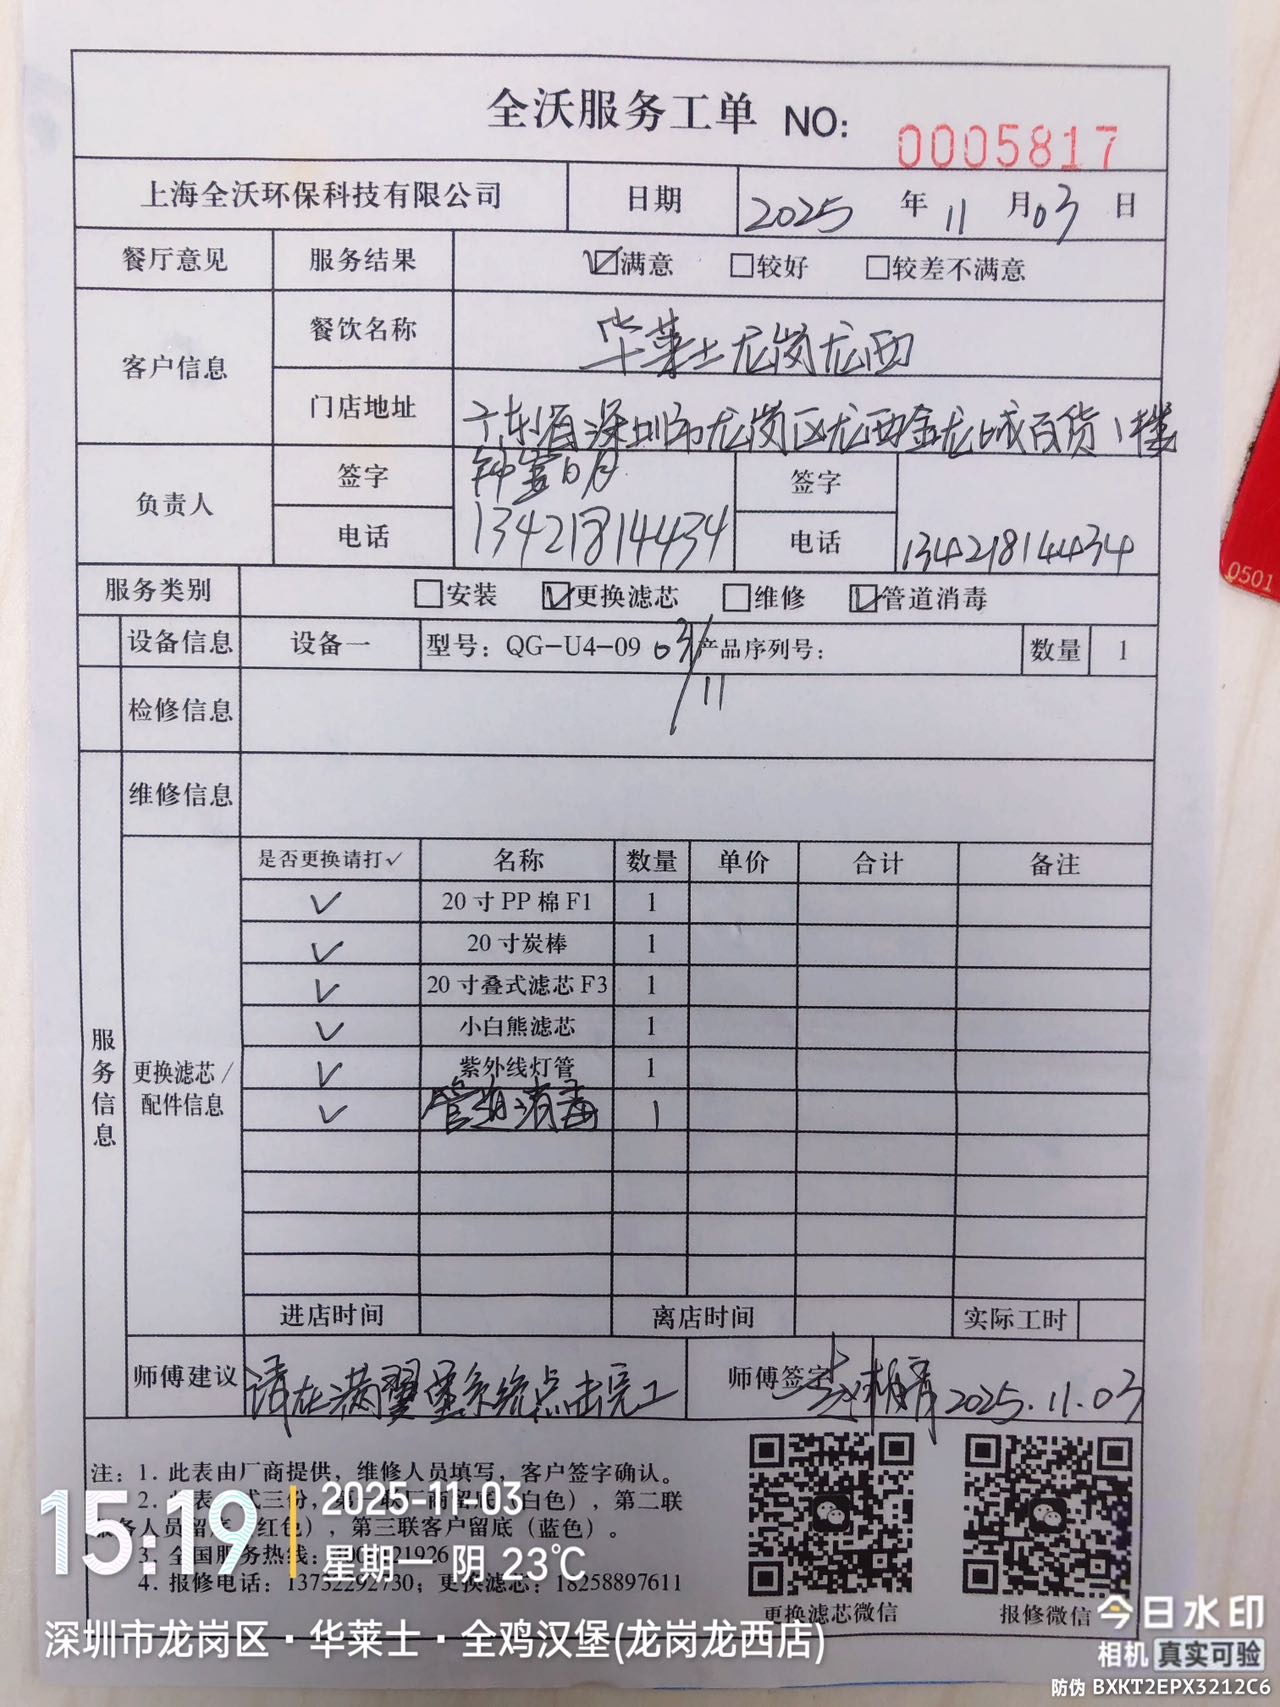 全沃服务工单 NO: 0005817
上海全沃环保科技有限公司 日期 2025 年 11 月 03 日
餐厅意见 服务结果 ☑满意 □较好 □较差不满意
客户信息 餐饮名称 华莱士龙岗龙西
门店地址 广东省深圳市龙岗区龙西金龙城百货1楼
负责人 签字 钟 明 签字
电话 13421814434 电话 13421814434
服务类别 □安装 ☑更换滤芯 □维修 ☑管道消毒
设备信息 设备一 型号：QG-U4-09 03/11 产品序列号： 数量 1
检修信息
维修信息
是否更换请打✓ 名称 数量 单价 合计 备注
✓ 20寸PP棉F1 1
✓ 20寸炭棒 1
✓ 20寸叠式滤芯F3 1
✓ 小白熊滤芯 1
✓ 紫外线灯管 1
✓ 管道消毒 1
服务信息
更换滤芯/
配件信息
进店时间 离店时间 实际工时
师傅建议 请在满翼星系统点击完工 师傅签字 2025.11.03
注：1. 此表由厂商提供，维修人员填写，客户签字确认。
2. 此表 式三份，第 联厂商留底（白色），第二联
务人员留底（红色），第三联客户留底（蓝色）。
3. 全国服务热线： 21926
4. 报修电话：13732292730；更换滤芯：18258897611
更换滤芯微信 报修微信
15:19 2025-11-03
星期一 阴 23℃
深圳市龙岗区·华莱士·全鸡汉堡(龙岗龙西店)
今日水印
相机 真实可验
防伪 BXKT2EPX3212C6
0501